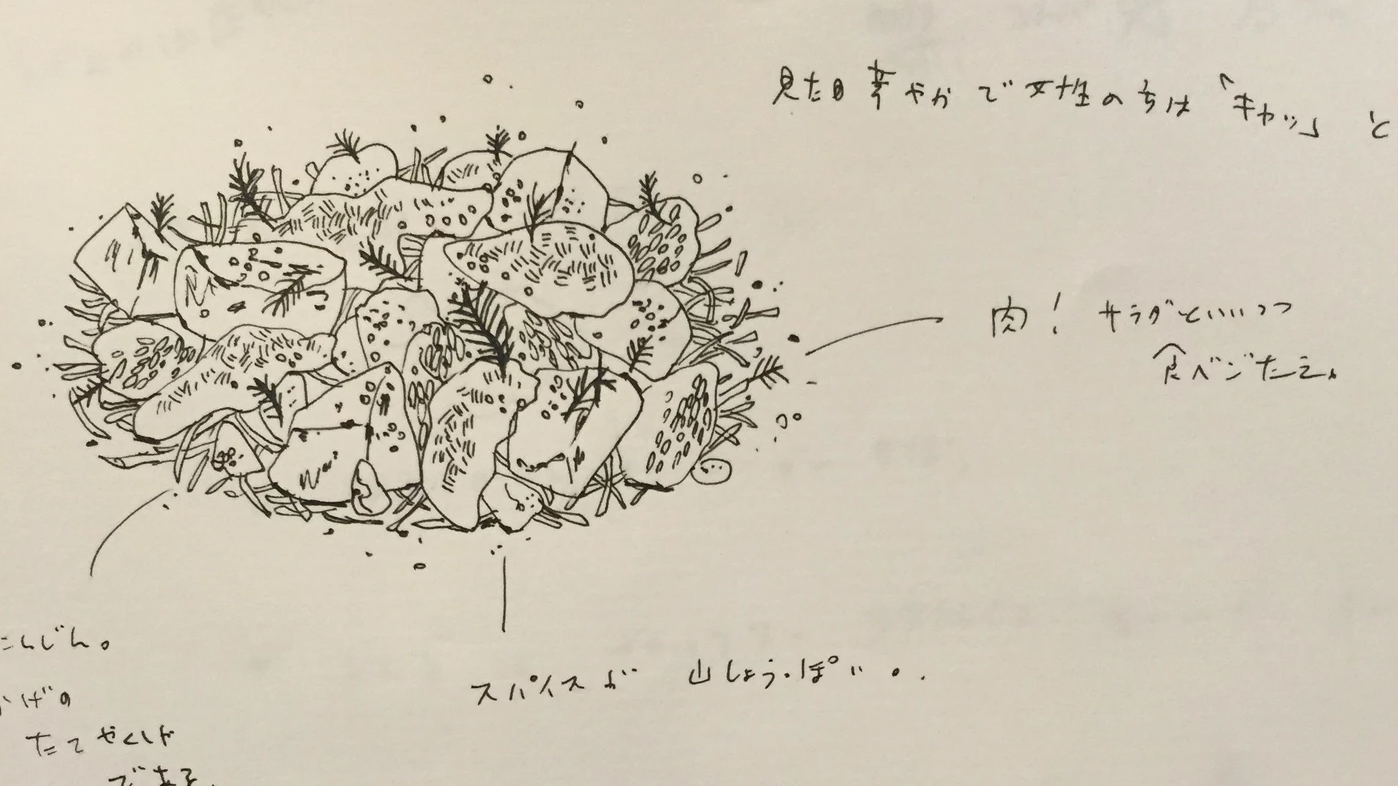 見た目華やかで女性のちは「キャッ」と
肉！サラダといいつつ
食べごたえ。
スパイスが 山しょうっぽい。.
にんじん。
かげの
たてやくしゃ
である。